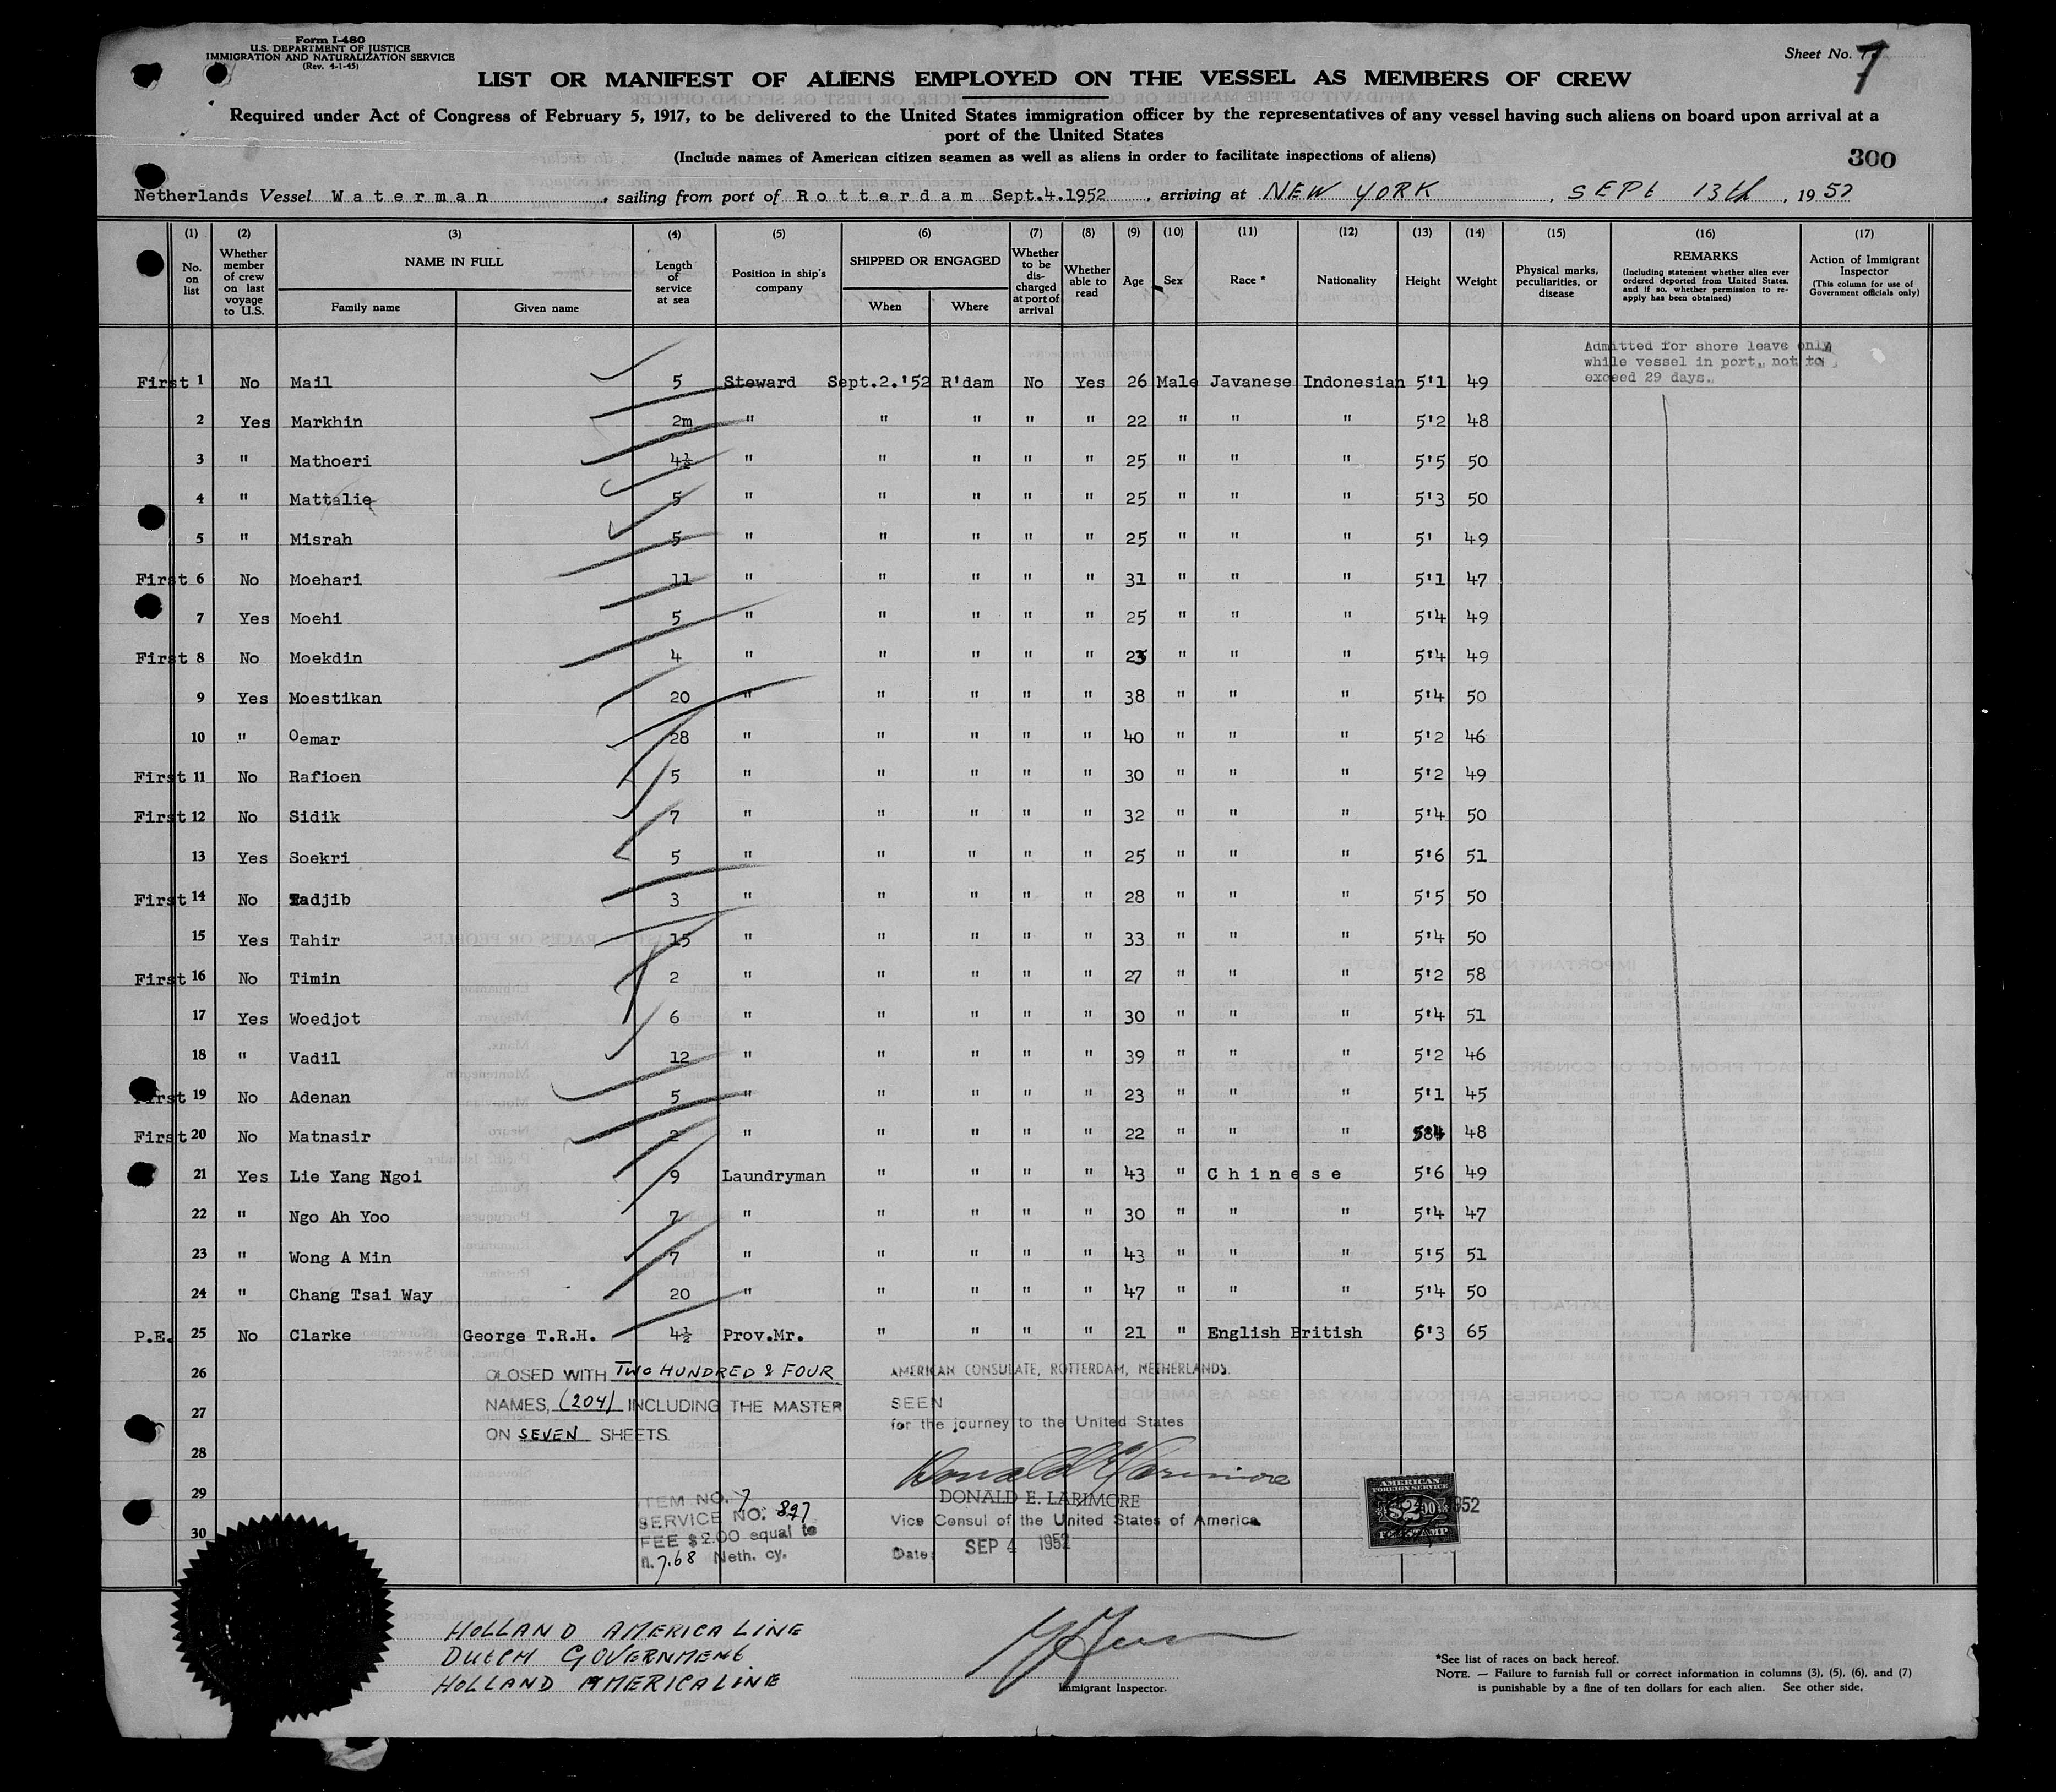 Form I-480
U.S. DEPARTMENT OF JUSTICE
IMMIGRATION AND NATURALIZATION SERVICE
(Rev. 4-1-45)
Sheet No. 7
LIST OR MANIFEST OF ALIENS EMPLOYED ON THE VESSEL AS MEMBERS OF CREW
Required under Act of Congress of February 5, 1917, to be delivered to the United States immigration officer by the representatives of any vessel having such aliens on board upon arrival at a
port of the United States
(Include names of American citizen seamen as well as aliens in order to facilitate inspections of aliens)
300
Netherlands Vessel Waterman, sailing from port of Rotterdam Sept.4.1952, arriving at NEW YORK, SEPt 13th, 1952
(1) No. on list
(2) Whether member of crew on last voyage to U.S.
(3) NAME IN FULL Family name Given name
(4) Length of service at sea
(5) Position in ship's company
(6) SHIPPED OR ENGAGED When Where
(7) Whether to be discharged at port of arrival
(8) Whether able to read
(9) Age
(10) Sex
(11) Race *
(12) Nationality
(13) Height
(14) Weight
(15) Physical marks, peculiarities, or disease
(16) REMARKS (Including statement whether alien ever ordered deported from United States, and if so, whether permission to re-apply has been obtained)
(17) Action of Immigrant Inspector (This column for use of Government officials only)
Admitted for shore leave only
while vessel in port, not to
exceed 29 days.
First 1 No Mail 5 Steward Sept.2.'52 R'dam No Yes 26 Male Javanese Indonesian 5'1 49
2 Yes Markhin 2m " " " " " 22 " " " 5'2 48
3 " Mathoeri 4½ " " " " " 25 " " " 5'5 50
4 " Mattalie 5 " " " " " 25 " " " 5'3 50
5 " Misrah 5 " " " " " 25 " " " 5' 49
First 6 No Moehari 11 " " " " " 31 " " " 5'1 47
7 Yes Moehi 5 " " " " " 25 " " " 5'4 49
First 8 No Moekdin 4 " " " " " 23 " " " 5'4 49
9 Yes Moestikan 20 " " " " " 38 " " " 5'4 50
10 " Oemar 28 " " " " " 40 " " " 5'2 46
First 11 No Rafioen 5 " " " " " 30 " " " 5'2 49
First 12 No Sidik 7 " " " " " 32 " " " 5'4 50
13 Yes Soekri 5 " " " " " 25 " " " 5'6 51
First 14 No Tadjib 3 " " " " " 28 " " " 5'5 50
15 Yes Tahir 15 " " " " " 33 " " " 5'4 50
First 16 No Timin 2 " " " " " 27 " " " 5'2 58
17 Yes Woedjot 6 " " " " " 30 " " " 5'4 51
18 " Vadil 12 " " " " " 39 " " " 5'2 46
First 19 No Adenan 5 " " " " " 23 " " " 5'1 45
First 20 No Matnasir 2 " " " " " 22 " " " 5'4 48
21 Yes Lie Yang Ngoi 9 Laundryman " " " " 43 " Chinese 5'6 49
22 " Ngo Ah Yoo 7 " " " " " 30 " " " 5'4 47
23 " Wong A Min 7 " " " " " 43 " " " 5'5 51
24 " Chang Tsai Way 20 " " " " " 47 " " " 5'4 50
P.E. 25 No Clarke George T.R.H. 4½ Prov.Mr. " " " " 21 " English British 6'3 65
26
27
28
29
30
CLOSED WITH TWO HUNDRED & FOUR
NAMES, (204) INCLUDING THE MASTER
ON SEVEN SHEETS
AMERICAN CONSULATE, ROTTERDAM, NETHERLANDS.
SEEN
for the journey to the United States
DONALD E. LARIMORE
Vice Consul of the United States of America
Date: SEP 4 1952
ITEM NO. 7
SERVICE NO. 897
FEE $2.00 equal to
fl. 7.68 Neth. cy.
AMERICAN
FOREIGN SERVICE
$2.00
FEE STAMP
1952
HOLLAND AMERICA LINE
DUtCH GOVERNMENt
HOLLAND AMERICA LINE
Immigrant Inspector.
*See list of races on back hereof.
NOTE. — Failure to furnish full or correct information in columns (3), (5), (6), and (7)
is punishable by a fine of ten dollars for each alien. See other side.